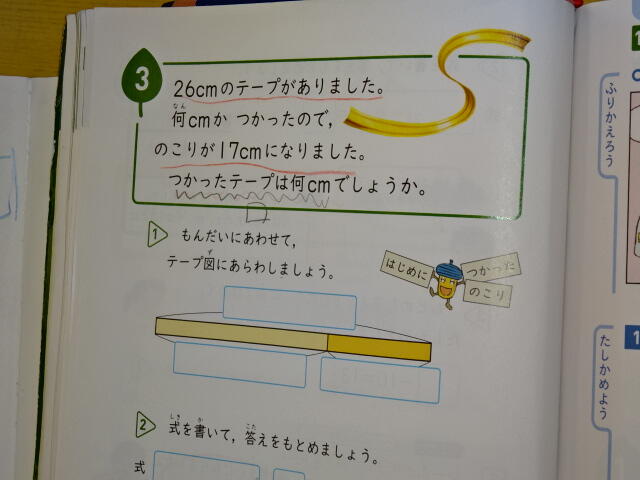 3
26cmのテープがありました。
何cmか つかったので,
のこりが17cmになりました。
つかったテープは何cmでしょうか。
なん
1 もんだいにあわせて,
テープ図にあらわしましょう。
ず
はじめに
つかった
のこり
2 式を書いて,答えをもとめましょう。
しき か こた
式
ふりかえろう
たしかめよう
1
1